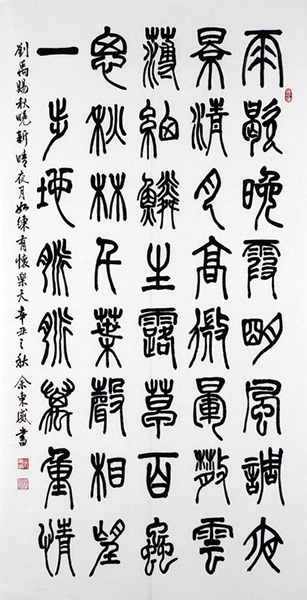 雨歇晚霞明風調夜
景清月高微暈散雲
薄細鱗生露草百蟲
思秋林千葉聲相望
一步地脈脈萬重情
劉禹錫秋晚新晴夜月如練有懷樂天 辛丑之秋 余東書